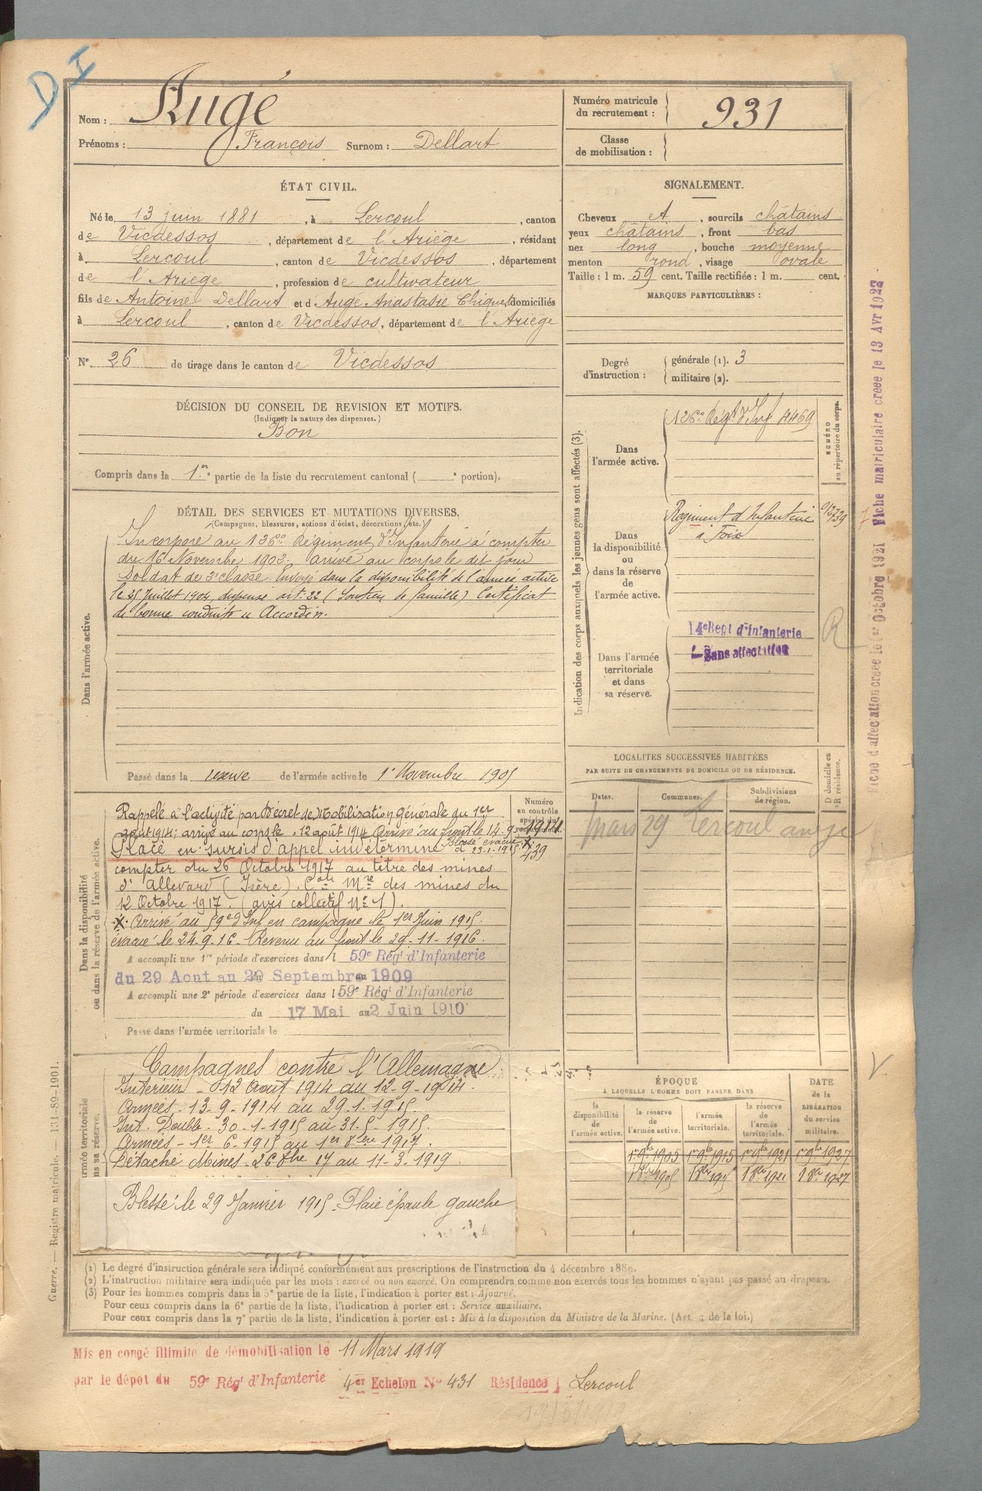 D I
Nom : Augé
Prénoms : François Surnom : Dellart
Numéro matricule du recrutement : 931
Classe de mobilisation :
ÉTAT CIVIL.
Né le 13 juin 1881, à Lercoul, canton
de Vicdessos, département de l'Ariège, résidant
à Lercoul, canton de Vicdessos, département
de l'Ariège, profession de cultivateur
fils de Antoine Dellart et d'Augé Anastasie domiciliés
à Lercoul, canton de Vicdessos, département de l'Ariège
N° 26 de tirage dans le canton de Vicdessos
SIGNALEMENT.
Cheveux et, sourcils châtains
yeux châtains, front bas
nez long, bouche moyenne
menton rond, visage ovale
Taille : 1 m. 59 cent. Taille rectifiée : 1 m. cent.
MARQUES PARTICULIÈRES :
Degré d'instruction : générale (1). 3
militaire (2).
DÉCISION DU CONSEIL DE REVISION ET MOTIFS.
(Indiquer la nature des dispenses.)
Bon
Compris dans la 1re partie de la liste du recrutement cantonal ( e portion).
DÉTAIL DES SERVICES ET MUTATIONS DIVERSES.
(Campagnes, blessures, actions d'éclat, décorations, etc.)
Dans l'armée active.
Incorporé au 126e Régiment d'Infanterie à compter
du 16 Novembre 1903, arrivé au corps le dit jour
soldat de 2e classe. Envoyé dans la disponibilité de l'armée active
le 31 Juillet 1904, dispensé art. 22 (Soutien de famille) Certificat
de bonne conduite "Accordé".
Passé dans la réserve de l'armée active le 1er Novembre 1905
Indication des corps auxquels les jeunes gens sont affectés (3).
NUMÉRO au répertoire du corps.
Dans l'armée active.
126e Régt d'Inf 4469
Dans la disponibilité ou dans la réserve de l'armée active.
Régiment d'Infanterie
à Foix
Dans l'armée territoriale et dans sa réserve.
14e Regt d'Infanterie
Sans affectation
R
Fiche d'affectation créée le 1er Octobre 1921 Fiche matriculaire créée le 13 Avr 1922
Dans la disponibilité ou dans la réserve de l'armée active.
Numéro au contrôle spécial
Rappelé à l'activité par Décret de Mobilisation Générale du 1er
août 1914; arrivé au corps le 12 août 1914 Arrivé au front le 14.9
Blessé évacué
Placé en sursis d'appel indéterminé
439
compter du 26 Octobre 1917 au titre des mines
d'Allevard (Isère). des mines du
12 Octobre 1917. (avis collectif N° 1).
X. Arrivé au 59e d'Inf en campagne le 1er Juin 1915.
évacué le 24.9.16. Revenu au front le 29-11-1916.
A accompli une 1re période d'exercices dans le 59e Rég' d'Infanterie
du 29 Aout au 20 Septembre 1909
A accompli une 2e période d'exercices dans le 59e Rég' d'Infanterie
du 17 Mai au 2 Juin 1910
Passé dans l'armée territoriale le
LOCALITÉS SUCCESSIVES HABITÉES
PAR SUITE DE CHANGEMENTS DE DOMICILE OU DE RÉSIDENCE.
Dates. Communes. Subdivisions de région. D domicile ou R résidence.
mars 29 Lercoul ariège
Campagnes contre l'Allemagne
Intérieur - 12 Aout 1914 au 12-9-1914.
Armées - 13-9-1914 au 29-1-1915.
Int. Double - 30-1-1915 au 31-5-1915.
Armées - 1er 6-1915 au 1er 8bre 1917.
Détaché Mines - 26 8bre 17 au 11-3-1919.
Blessé le 29 Janvier 1915. Plaie épaule gauche
ÉPOQUE
À LAQUELLE L'HOMME DOIT PASSER DANS
la disponibilité de l'armée active. la réserve de l'armée active. l'armée territoriale. la réserve de l'armée territoriale.
DATE de la LIBÉRATION du service militaire.
1er 9bre 1905 1er 9bre 1915 1er 9bre 1921 1er 9bre 1927
(1) Le degré d'instruction générale sera indiqué conformément aux prescriptions de l'instruction du 4 décembre 1889.
(2) L'instruction militaire sera indiquée par les mots : exercé ou non exercé. On comprendra comme non exercés tous les hommes n'ayant pas passé au drapeau.
(3) Pour les hommes compris dans la 5e partie de la liste, l'indication à porter est : Ajourné.
Pour ceux compris dans la 6e partie de la liste, l'indication à porter est : Service auxiliaire.
Pour ceux compris dans la 7e partie de la liste, l'indication à porter est : Mis à la disposition du Ministre de la Marine. (Art. 4 de la loi.)
Guerre. — Registre matricule. — 131-89-1901.
Mis en congé illimité de démobilisation le 11 Mars 1919
par le dépot du 59e Rég' d'Infanterie 4er Echelon N° 431 Résidence Lercoul